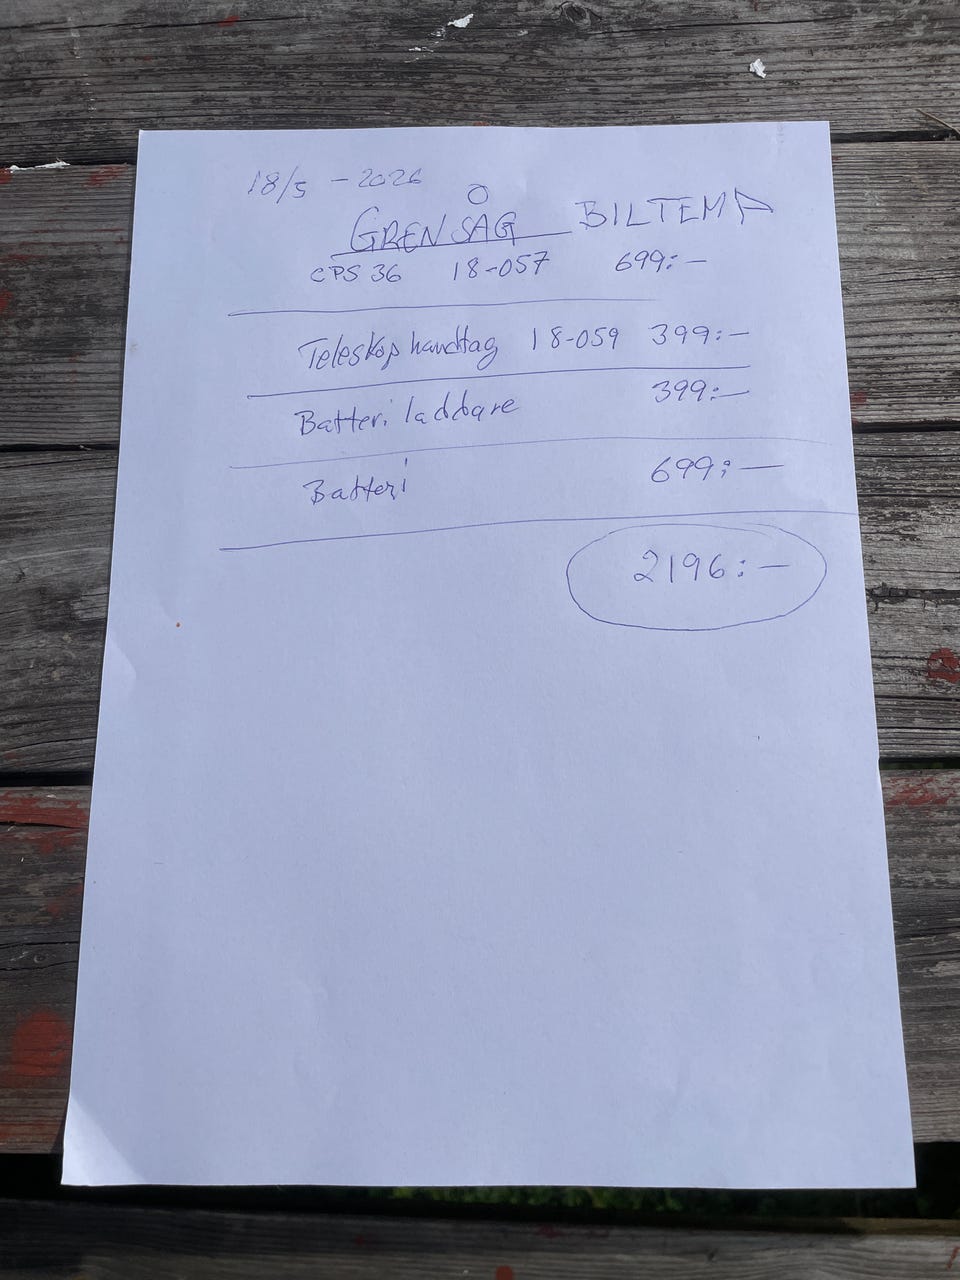 18/5 - 2026
GRENSÅG BILTEMA
CPS 36 18-057 699:-
Teleskop handtag 18-059 399:-
Batteri laddare 399:-
Batteri 699:-
2196:-